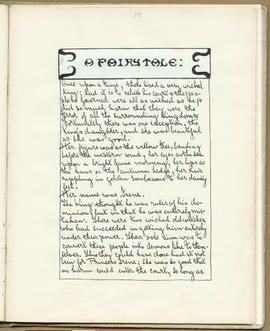 A FAIRY TALE:
Once upon a time, there lived a very wicked
king; sad it is to relate his court & the peo-
ple he governed were all as wicked as he &
did so much harm that they were the
terror of all the surrounding kingdoms;
fortunately there was one exception, the
king's daughter, and she was beautiful
as she was good.
Her figure was as the willow tree, bending
before the western wind, her eyes as the sea
upon a bright June morning, her lips as
the haws in the autumn hedge, her hair
rippling in golden to her dainty
feet.
Her name was Irene.
The king thought he was ruler of his do-
minions but in that he was entirely mis-
taken. There were two wicked old witches
who had succeeded in getting him entirely
under their power. Their sole aim was to
convert these people into demons like to them-
selves. This they could have done had it not
been for Princess Irene; she was so good that
no harm could enter the court, so long as